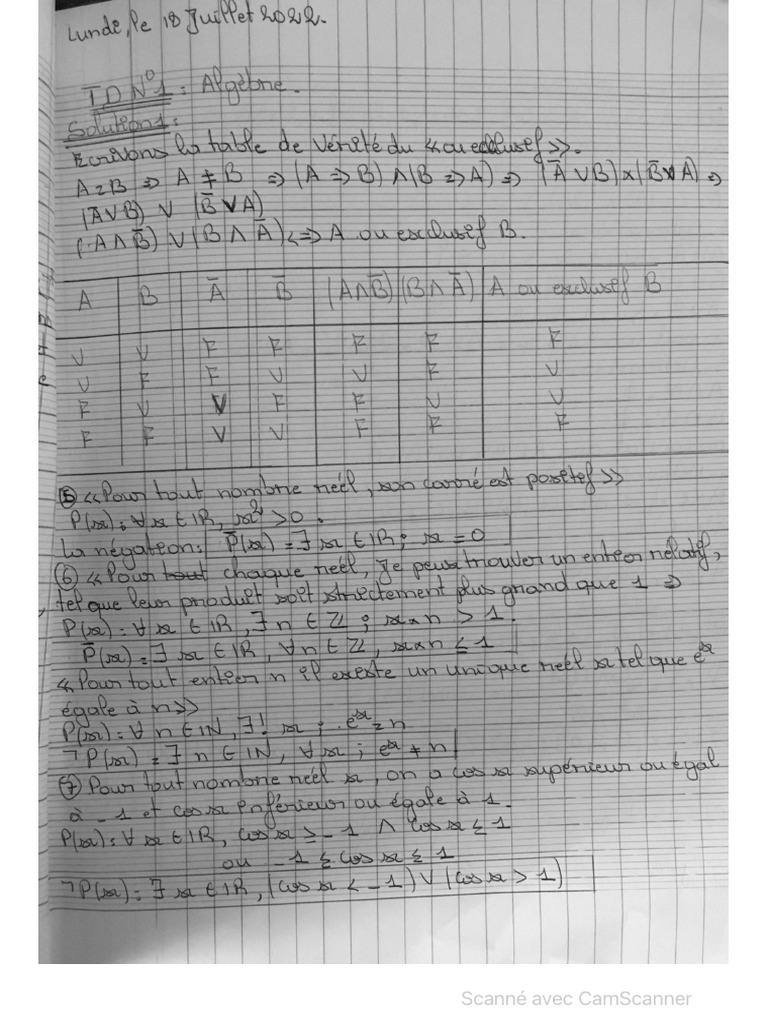 Lundi, le 18 Juillet 2022.
TD N°1 : Algèbre.
Solution 1 :
Ecrivons la table de vérité du « ou exclusif ».
A = B => A ≠ B => (A => B) ∧ (B => A) => (Ā ∨ B) ∧ (B̄ ∨ A) =>
(Ā ∨ B) ∨ (B̄ ∨ A)
(A ∧ B̄) ∨ (B ∧ Ā) <=> A ou exclusif B.
A B Ā B̄ (A∧B̄) (B∧Ā) A ou exclusif B
V V F F F F F
V F F V V F V
F V V F F V V
F F V V F F F
⑤ « Pour tout nombre réel, son carré est positif »
P(x) : ∀ x ∈ IR, x² > 0.
La négation : P̄(x) = ∃ x ∈ IR ; x = 0
⑥ « Pour tout chaque réel, je peux trouver un entier relatif,
tel que leur produit soit strictement plus grand que 1 =>
P(x) : ∀ x ∈ IR, ∃ n ∈ Z ; x × n > 1.
P̄(x) = ∃ x ∈ IR, ∀ n ∈ Z, x × n ≤ 1
« Pour tout entier n il existe un unique réel x tel que eˣ
égale à n »
P(x) : ∀ n ∈ IN, ∃! x ; eˣ = n
¬P(x) = ∃ n ∈ IN, ∀ x ; eˣ ≠ n
⑦ Pour tout nombre réel x, on a cos x supérieur ou égal
à -1 et cos x inférieur ou égale à 1.
P(x) : ∀ x ∈ IR, cos x ≥ -1 ∧ cos x ≤ 1
ou -1 ≤ cos x ≤ 1
¬P(x) : ∃ x ∈ IR, (cos x < -1) ∨ (cos x > 1)
Scanné avec CamScanner